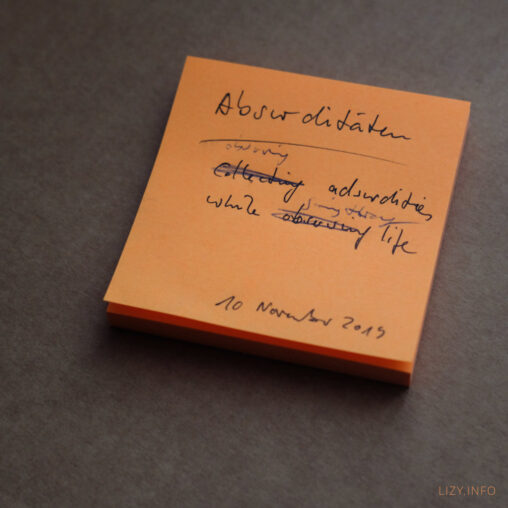 Absurditäten
observing
collecting absurdities
while observing life
10 November 2019
LIZY.INFO